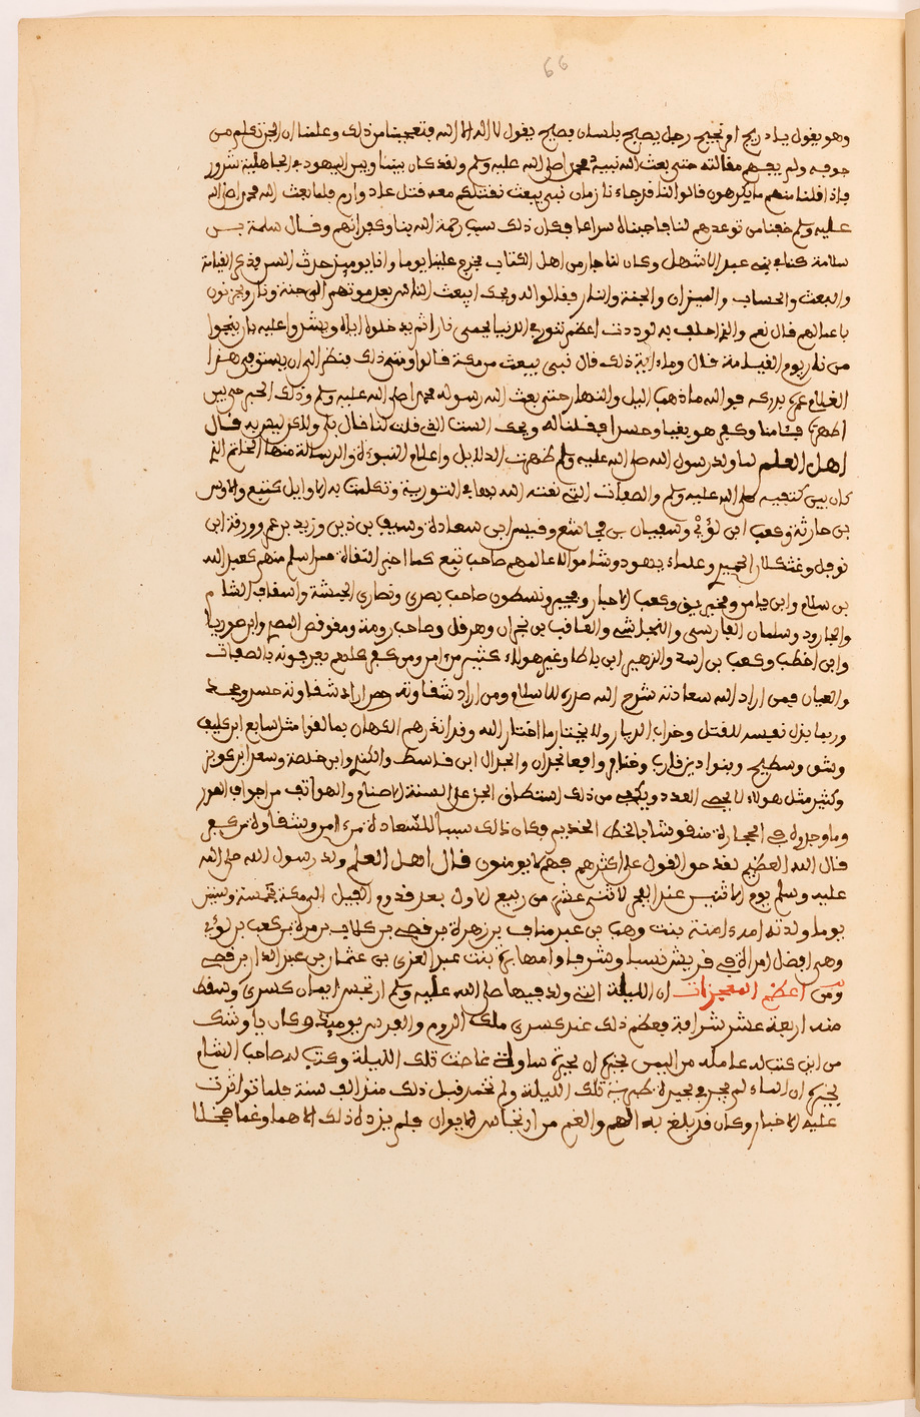 66
وهو يقول يا ذريح امر نجيح رجل يصيح بلسان فصيح يقول لا اله الا الله فتعجبنا من ذلك وعلمنا ان الجن تكلم من
جوفه ولم يفهم مقالته حتى بعث الله نبيه محمدا صلى الله عليه وسلم ولقد كان بيننا وبين اليهود في الجاهلية شرور
فاذا نلنا منهم ما يكرهون قالوا لنا قد جاءنا زمان نبي يبعث نقتلكم معه قتل عاد وارم فلما بعث الله محمدا صلى الله
عليه وسلم خفنا من توعدهم لنا فاجبناه سراعا فكان ذلك سبب رحمة الله بنا وكفرانهم وقال سلمة بن
سلامة كنا في بني عبد الاشهل وكان لنا جار من اهل الكتاب فخرج علينا يوما وانا يوميذ حدث السن فذكر القيامة
والبعث والحساب والميزان والجنة والنار فقالوا له ويحك ايبعث الناس بعد موتهم الى جنة ونار ويجزون
باعمالهم قال نعم والذي احلف به لوددت اعظم تنور في الدنيا يحمى نارا ثم يدخلوه اياه ويشدوا عليه بان ينجوا
من نار يوم القيامة قال وما ءاية ذلك قال نبي يبعث من مكة قالوا ومتى ذلك فنظر الي ان يستوفي هذا
الغلام عمره يدركه فوالله ما ذهب اليل والنهار حتى بعث الله رسوله محمدا صلى الله عليه وسلم وذلك الحبر حي بين
اظهرنا فئامنا وكفر هو بغيا وحسدا فقلنا له ويحك الست الذي قلت لنا قال بلى ولكن ليس به قال
اهل العلم لما ولد رسول الله صلى الله عليه وسلم ظهرت الدلايل واعلام النبوءة والرسالة منها الخاتم الذي
كان بين كتفيه صلى الله عليه وسلم والصفات التي نعته الله بها في التورية وتكلمت به الاوايل كتبع والاوس
بن حارثة وكعب ابن لؤي وسفيان بن مجاشع وقيس ابي سعادة وسيف بن ذي يزن وزيد بن عمر وورقة ابن
نوفل وعثكلان الحميري وعلماء يهود وشاموالا عالمهم صاحب تبع كما اخبر الثقاة ممن اسلم منهم كعبد الله
بن سلام وابن يامن ومخيريق وكعب الاحبار وبحير ونسطور صاحب بصرى ونصارى الحبشة واسقف الشام
والجارود وسلمان الفارسي والنجاشي والعاقب بن نجران وهرقل وصاحب رومة ومقوقص المصر وابن صوريا
وابن اخطب وكعب بن اسد والزهير ابن باطا وغير هؤلاء كثير من امن ومن كفر كلهم يعرفونه بالصفات
والعيان فمن اراد الله سعادته شرح الله صدره للاسلام ومن اراد شقاوته حسد وجحد
وربما بذل نفسه للقتل وخراب الديار ولا يختار ما اختار الله وقد انذرهم الكهان بما لقوا مثل سابع ابن كليب
وشق وسطيح وسواد بن قارب وخنافر وافعا نجران والجدال ابن قاسط والكندي وابن خلصة وسعد ابن كويز
وكثير مثل هولاء لا يحصى العدد ويكفي من ذلك استنطاق الجن على السنة الاصنام والهواتف من اجواف الصور
وما وجدوه في الحجارة منقوشا بالخط القديم فكان ذلك سببا للسعادة من ءامن وشقاوة من كفر
قال الله العظيم لقد حق القول على اكثرهم فهم لا يومنون قال اهل العلم ولد رسول الله صلى الله
عليه وسلم يوم الاثنين عند الفجر لاثنى عشر من ربيع الاول بعد قدوم الفيل الى مكة بخمسة وستين
يوما ولدته امه ءامنة بنت وهب بن عبد مناف بن زهرة بن قصي بن كلاب بن مرة بن كعب بن لؤي
وهي افضل امراة في قريش نسبا وشرفا وامها برة بنت عبد العزى بن عثمان بن عبد الدار بن قصي
ومن اعظم المعجزات ان الليلة التي ولد فيها صلى الله عليه وسلم ارتجس ايوان كسرى وسقط
منه اربعة عشر شرافة فعظم ذلك عند كسرى ملك الروم والفرس يوميذ وكان باوشك
من ان كتب له عامله من اليمن يخبره ان بحيرة ساوة غاضت تلك الليلة وكتب له صاحب الشام
يخبره ان الماء لم يجر في بحيرة طبرية تلك الليلة ولم تخمد قبل ذلك منذ الف سنة فلما تواترت
عليه الاخبار وكان قد بلغ به الهم والغم من ارتجاس الايوان فلم يزده ذلك الا هما وغما فخلا